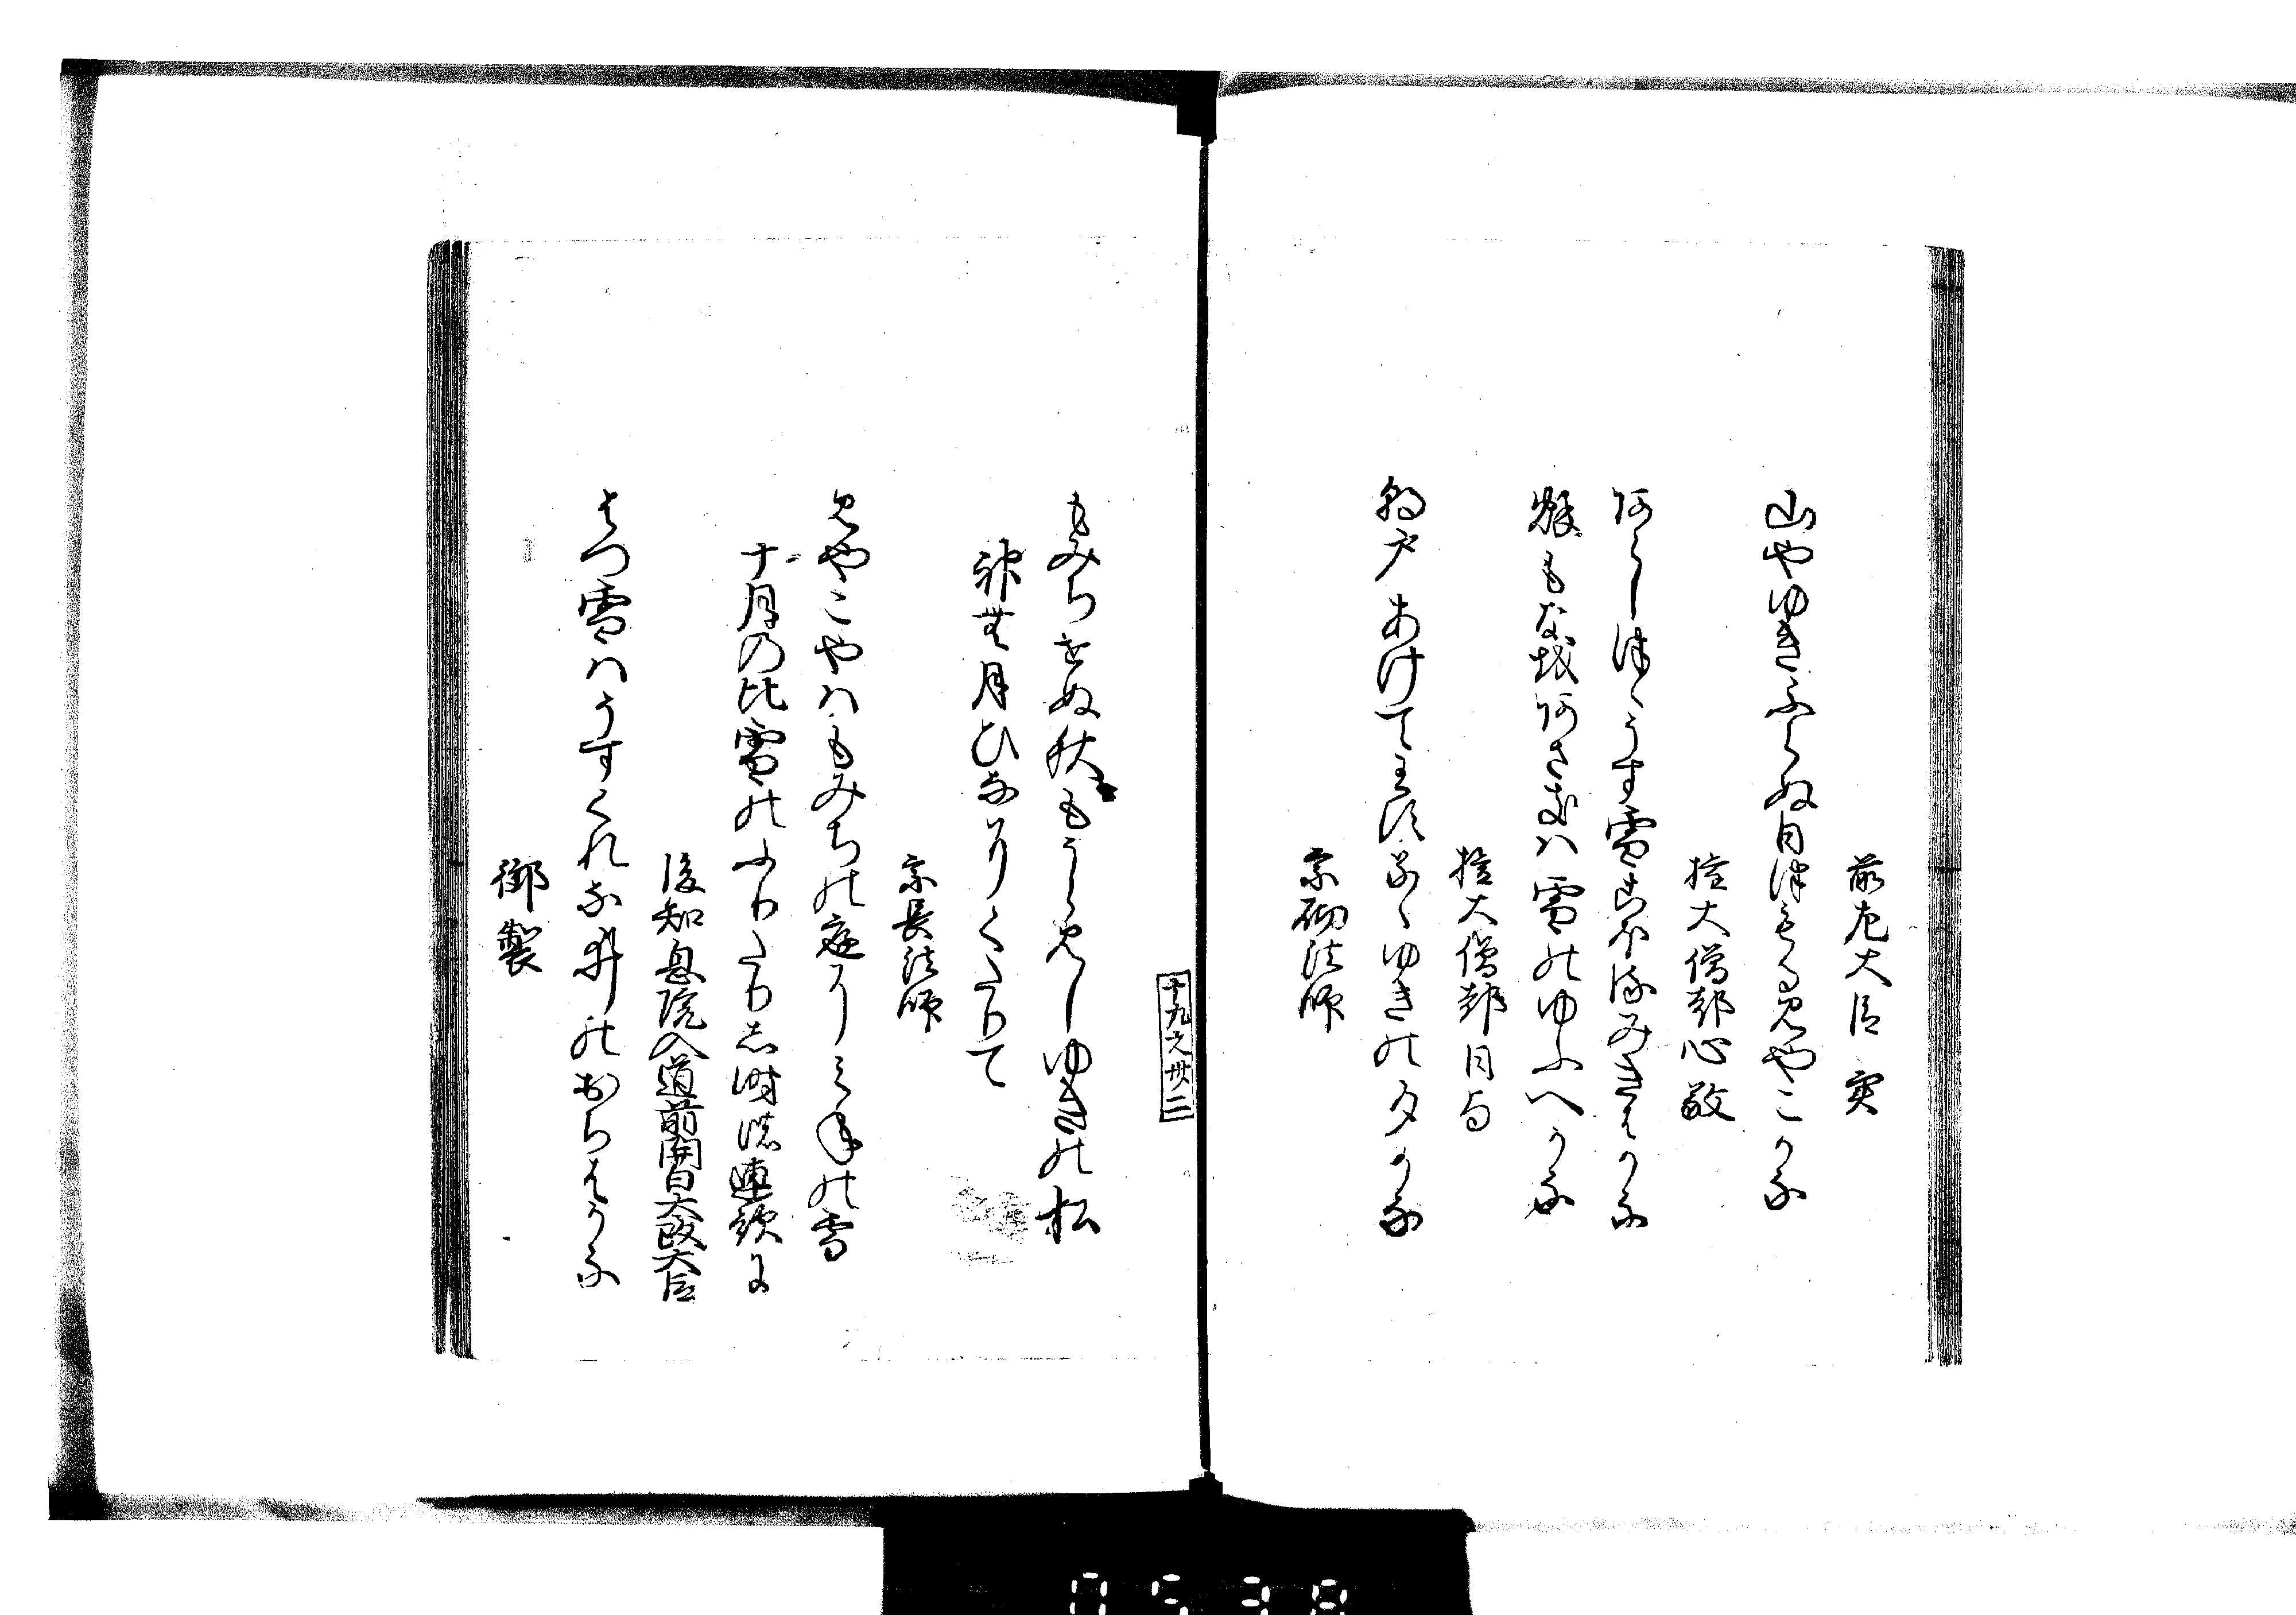 前左大臣 実
山やゆきふらぬ日津もる見やこかな
権大僧都心敬
阿らし津〻うす雪こほるみきはかな
根もな越阿さちハ雪のゆふへかな
権大僧都日与
朝戸あけて
ゆきの夕かな
宗砌法師
もみちせぬ秋もうらみしゆきの松
神無月ひなよりくたりて
宗長法師
見やこやハもみちの庭にみねの雪
十月の比雪のふりたりし時独連歌に
後知足院入道前関白太政大臣
はつ雪ハうすくれなゐのおちはかな
御製
十九之卅二